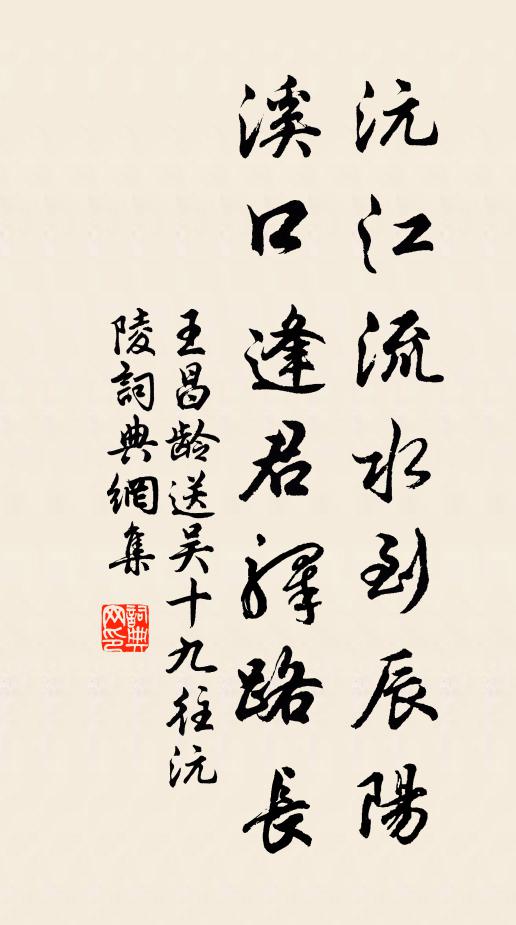 沅江流水到辰陽
溪口逢君驛路長
王昌齡送吴十九往沅
陵詞典網集
詞典网印